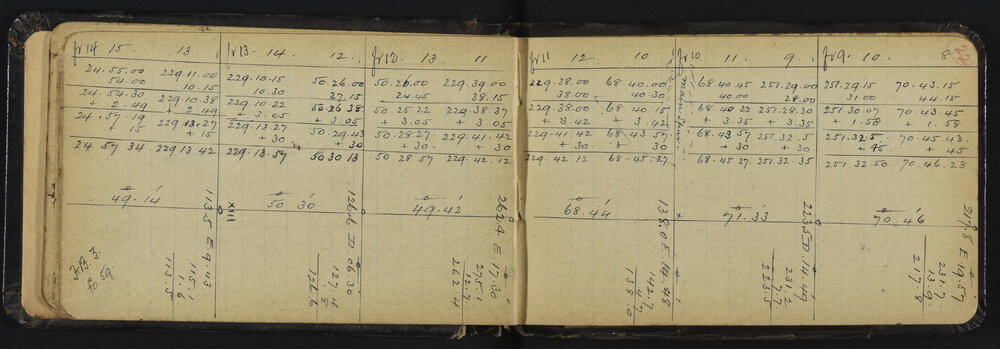 Jr14 15. 13.
24.55.00 229.11.00
54.00 10.15
24.54.30 229.10.38
+ 2.49 + 2.49
24.57.19 229.13.27
+ 15 + 15
24 57 34 229.13 42
49.14
113.5 E 9.43
115.1
1.6
113.5
Jr13. 14. 12.
229.10.15 50.26.00
10.30 27.15
229.10.22 50.26 38
+ 3.05 + 3.05
229.13.27 50.29.43
+ 30 + 30
229.13.57 50 30 13
50.30
XIII
126.6 D 06.30
127.4
8
126.6
Jr12. 13. 11
50.26.00 229.39.00
24.45 38.15
50.25 22 229.38.37
+ 3.05 + 3.05
50.28.27 229.41.42
+ 30 + 30
50 28 57 229.42.12
49.42
262.4 E 17.30
275.1
12.7
262.4
Jr11 12 10
229.38.00 68.40.00
38.00 40.30
229.38.00 68.40.15
+ 3.42 + 3.42
229.41.42 68.43.57
+ 30 + 30
229.42 12 68.45.27
68.44
138.0 E 14.48
142.7
4.7
138.0
Jr10 11. 9
68.40.45 251.29.00
40.00 28.00
68 40 22 251.28.30
+ 3.35 + 3.35
68.43 57 251.32.5
+ 30 + 30
68.45 27 251.32.35
x 71.33
223.5 D 14.49
231.2
7.7
223.5
Jr9. 10. 8
251.29.15 70.43.15
31.00 44.15
251.30.07 70.43.45
+ 1.58 + 1.58
251.32.5 70.45.43
+ 45 + 45
251.32.50 70.46.28
70.46
217.8 E 19.57
231.7
13.9
217.8